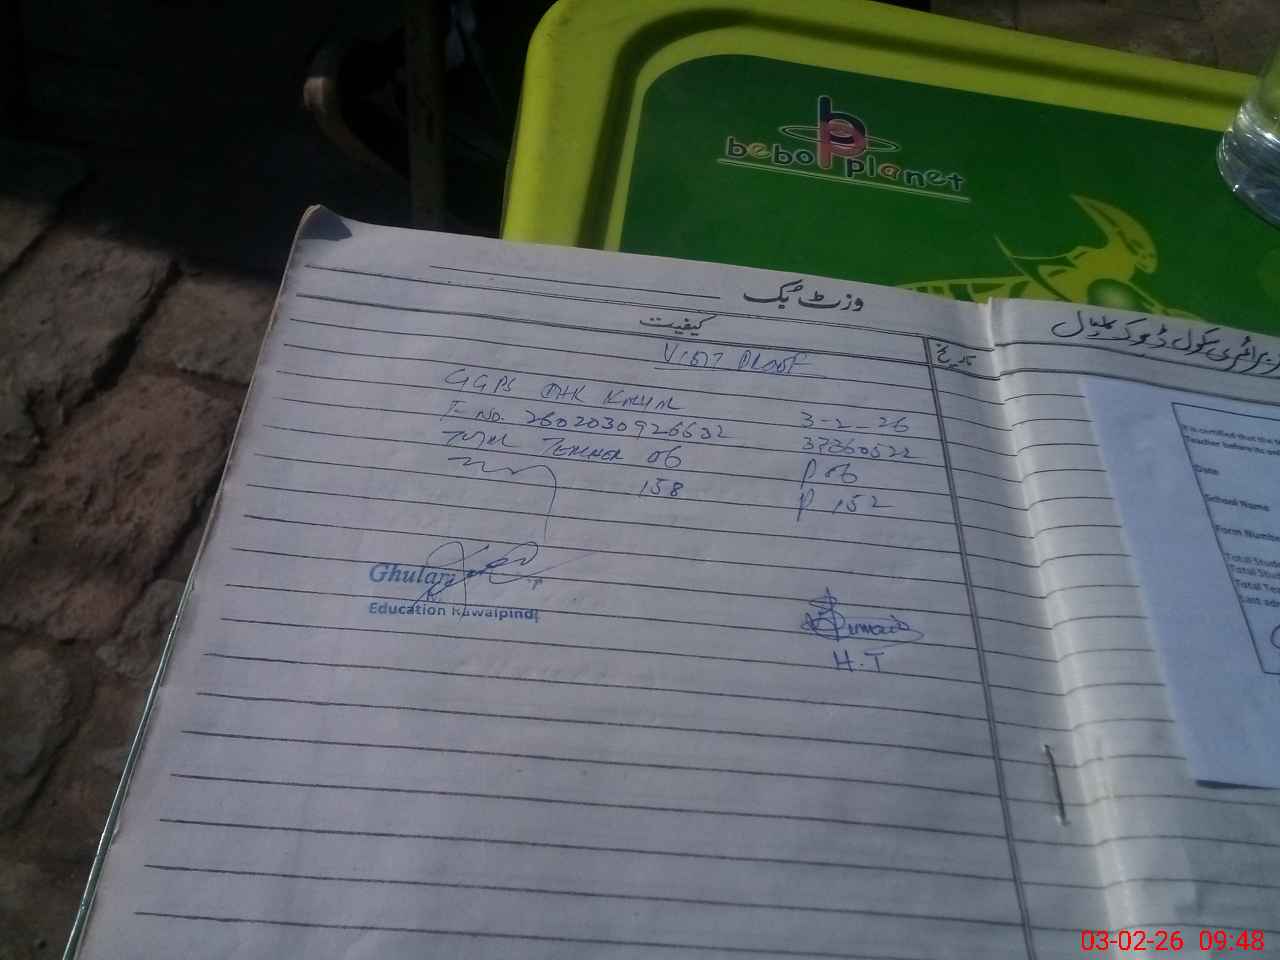 bebo planet
وزٹ بک
کیفیت
تاریخ
VISIT PROOF
GGPS DHK KMYM
3-2-26
F- NO. 2602030926632
37360522
TOTAL TEACHER 06
P 06
158
P 152
Ghulam
Education Rawalpindi
H.T
پرائمری سکول ڈھوک
It is certified that the
Teacher before its
Date
School Name
Form Number
Total Stud
Total Stu
Total Te
Last
03-02-26 09:48